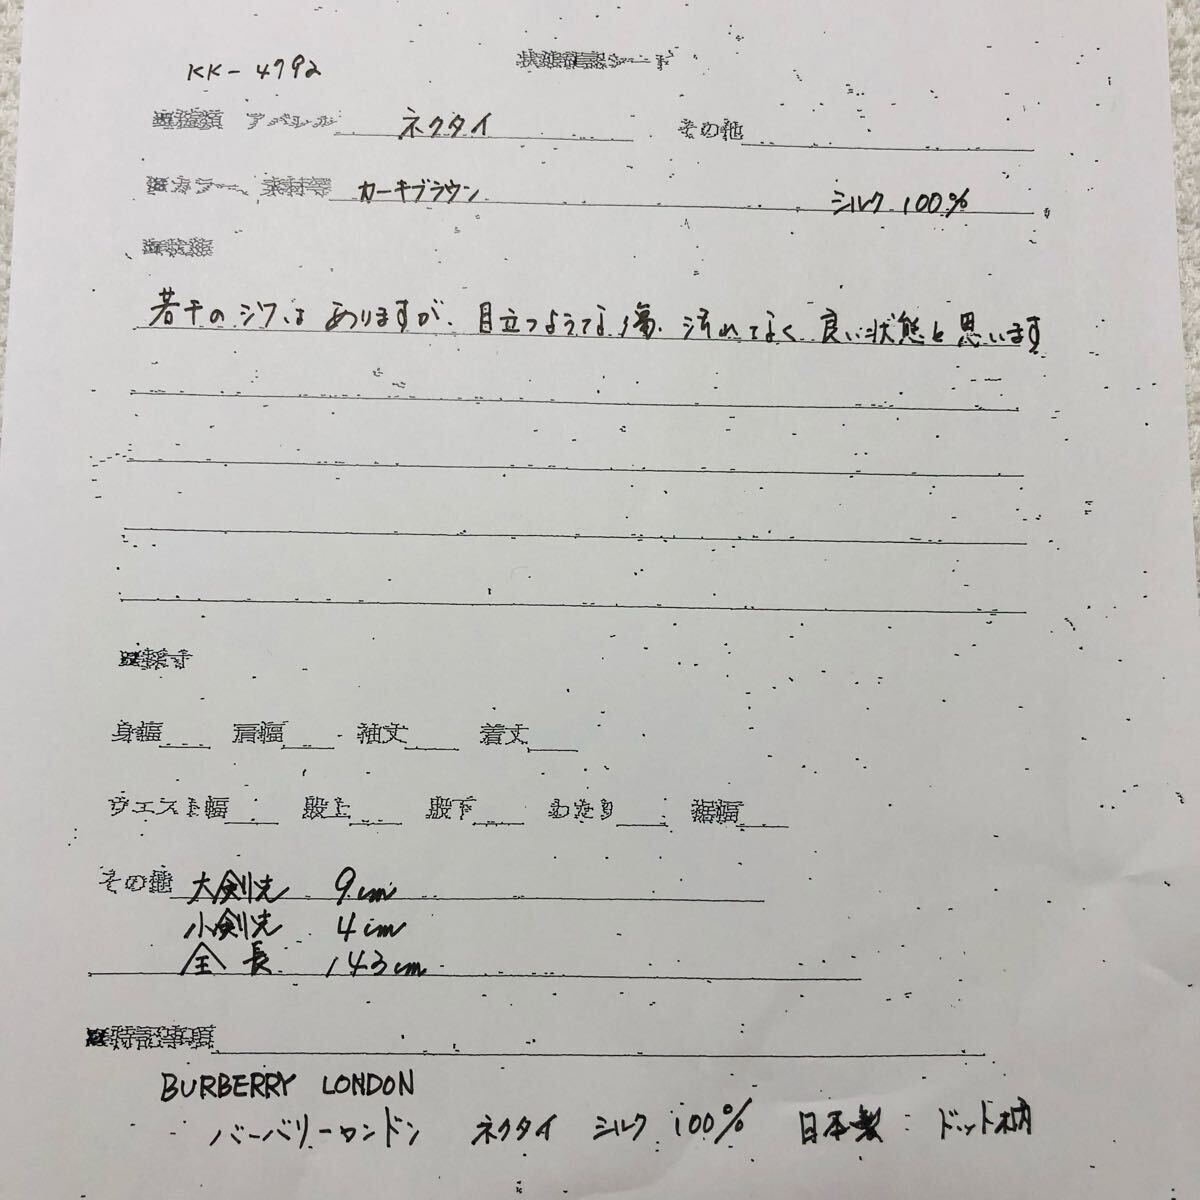 KK-4792
状態確認シート
■種類 アパレル ネクタイ その他
■カラー、素材等 カーキブラウン シルク 100%
■状態
若干のシワはありますが、目立つような傷、汚れもなく、良い状態と思います
■採寸
身幅 肩幅 袖丈 着丈
ウエスト幅 股上 股下 わたり 裾幅
その他 大剣先 9cm
小剣先 4cm
全長 143cm
■特記事項
BURBERRY LONDON
バーバリーロンドン ネクタイ シルク 100% 日本製 ドット柄